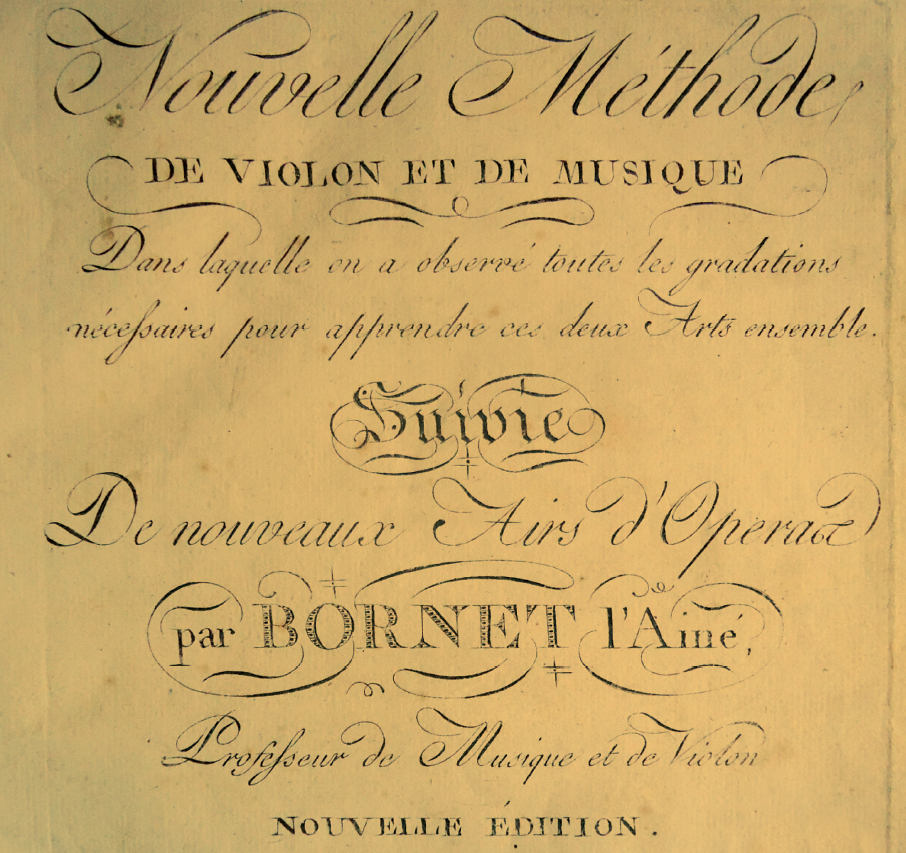 Nouvelle Méthode
DE VIOLON ET DE MUSIQUE
Dans laquelle on a observé toutes les gradations
néceſsaires pour apprendre ces deux Arts ensemble.
Suivie
De nouveaux Airs d'Opera &c
par BORNET l'Ainé,
Profeſseur de Musique et de Violon
NOUVELLE ÉDITION.